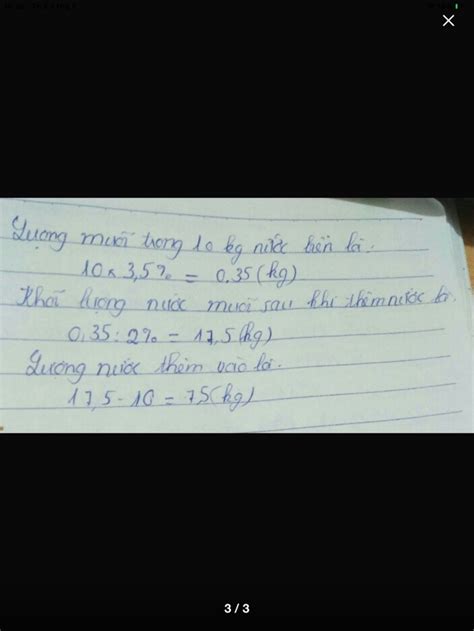 Lượng muối trong 10 kg nước biển là:
10 x 3,5% = 0,35 (kg)
Khối lượng nước muối sau khi thêm nước là.
0,35 : 2% = 17,5 (kg)
Lượng nước thêm vào là.
17,5 - 10 = 7,5 (kg)
3 / 3